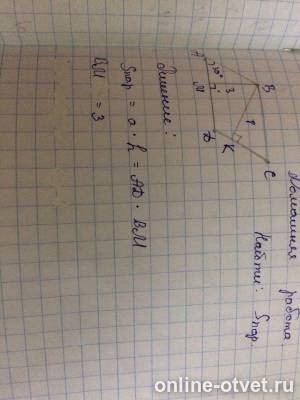 Домашняя работа.
Найти: Sпар.
A
30°
B
M
3
P
D
K
C
Решение:
Sпар = a · h = AD · BM
BM = 3
online-otvet.ru